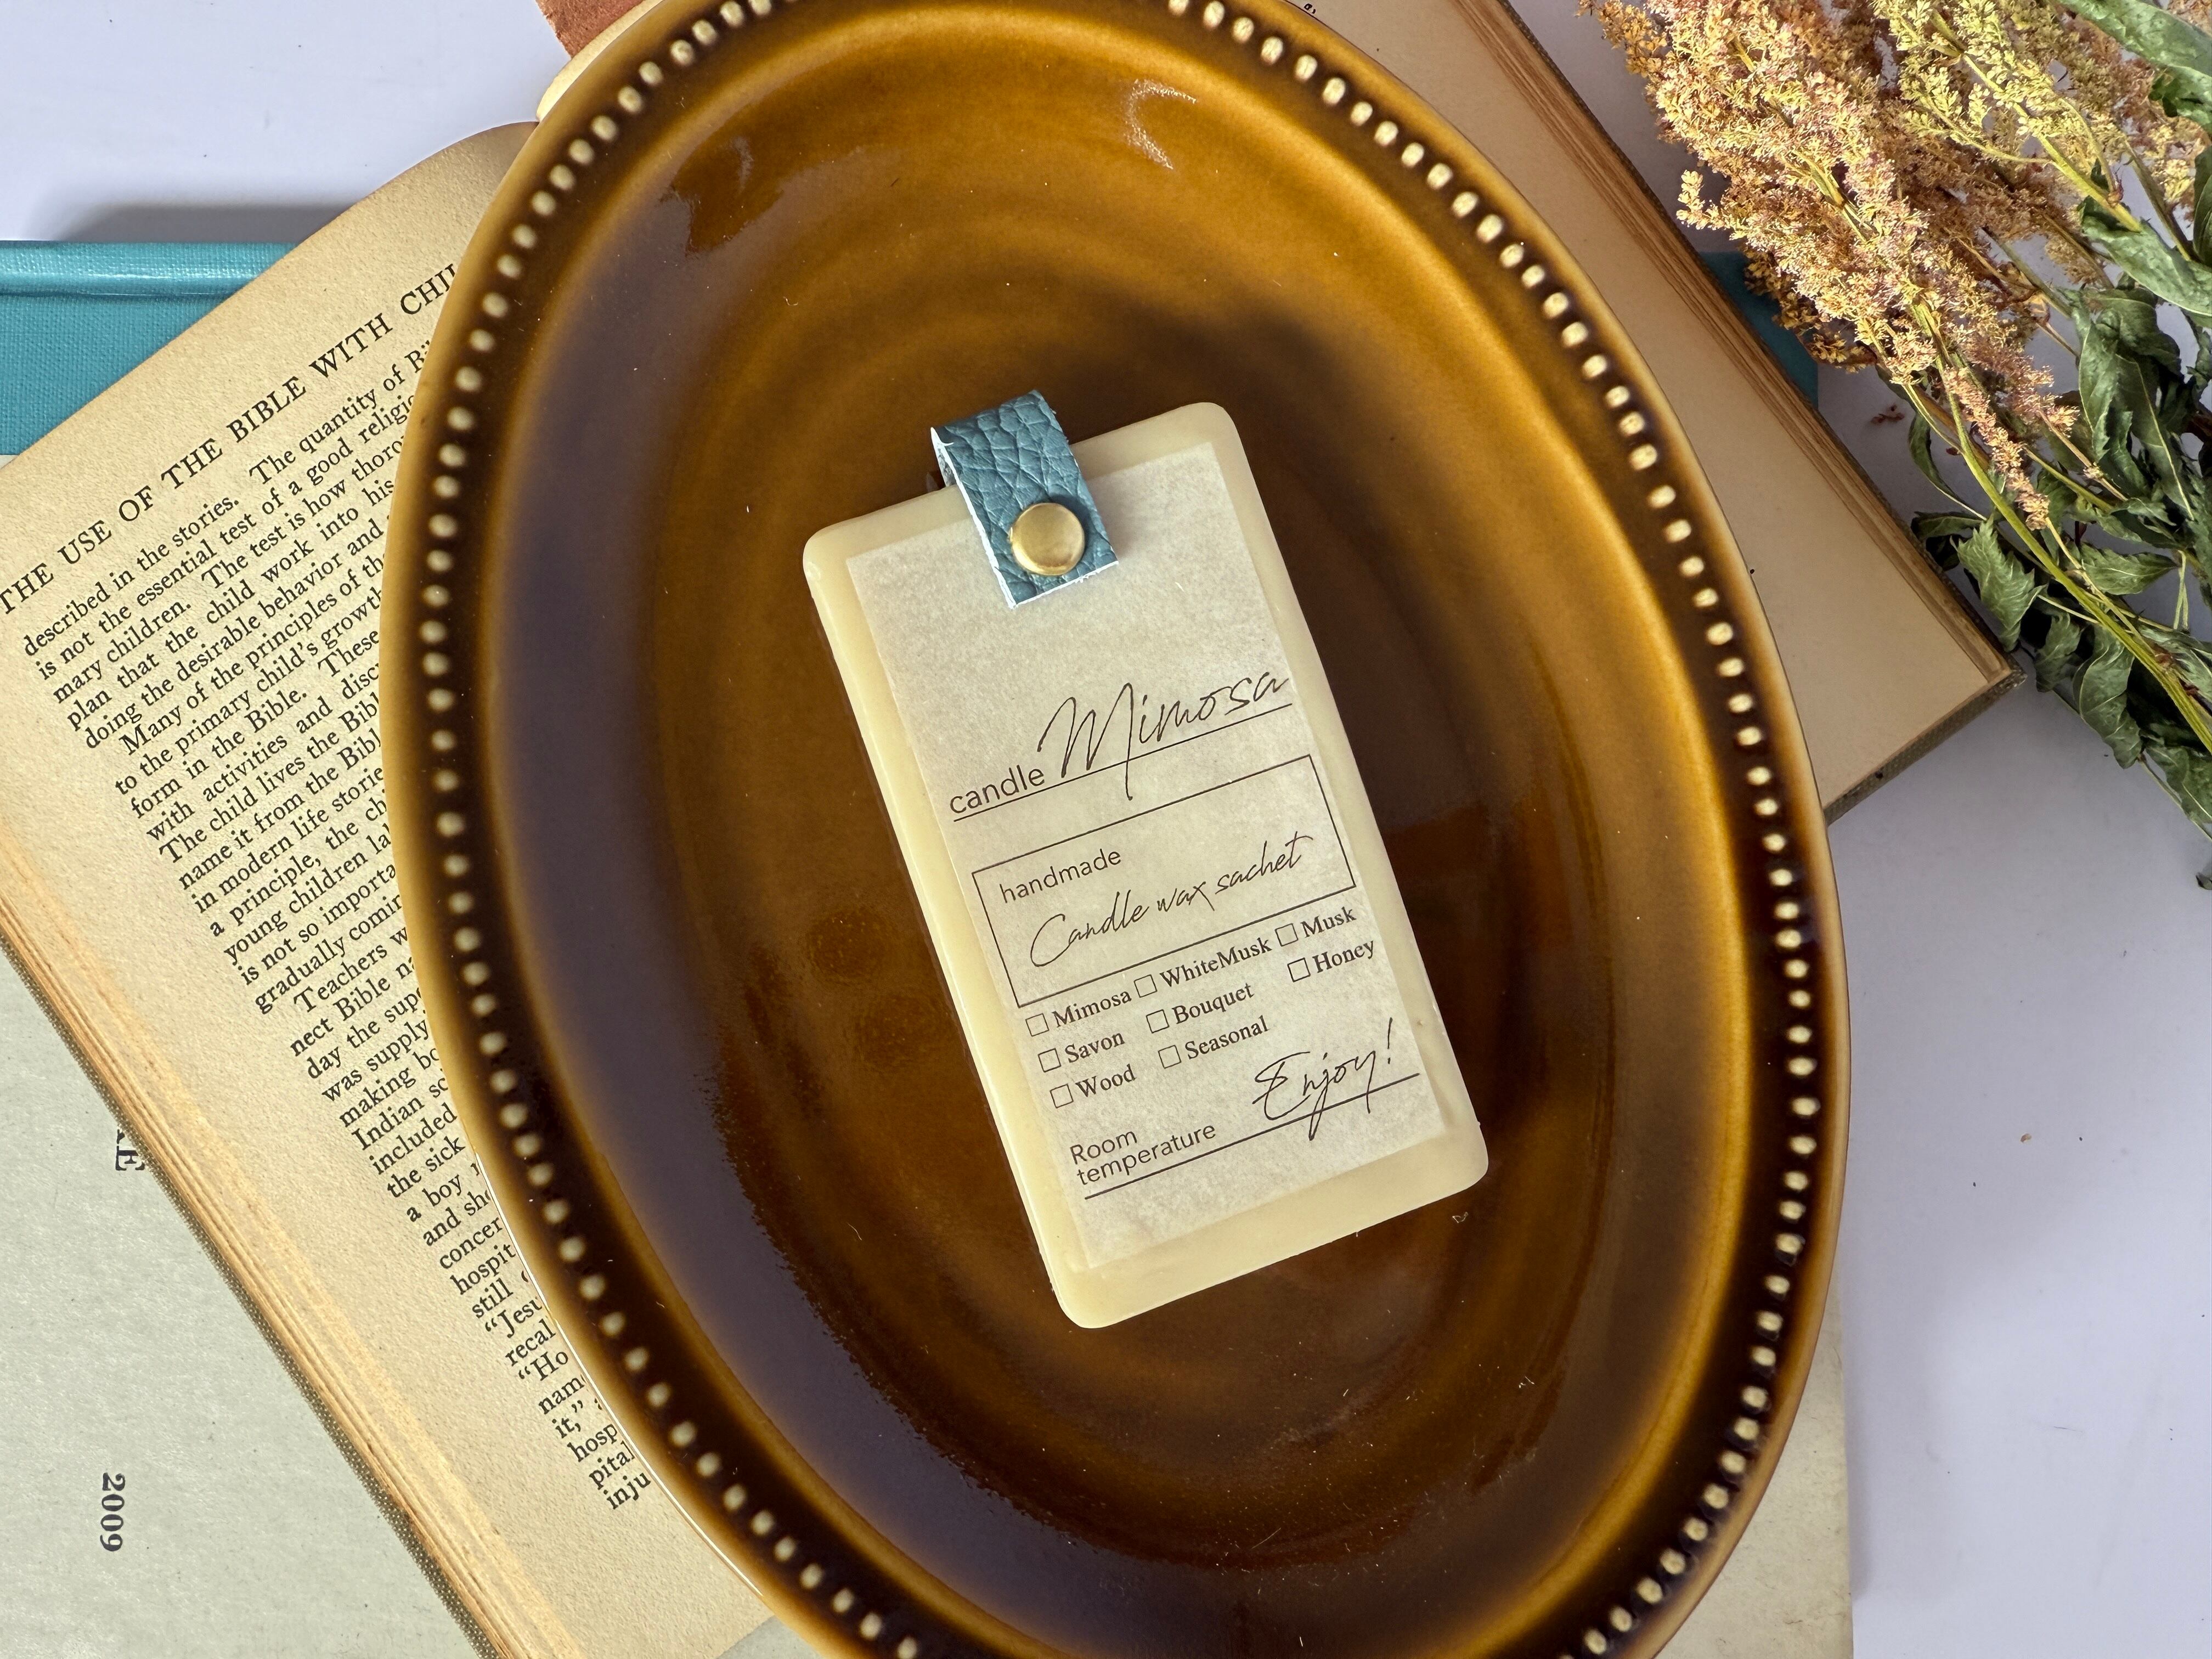 THE USE OF THE BIBLE WITH
described in the stories. The quantity of
is not the essential test of a good
mary children. The test is how
plan that the child work into his
doing the desirable behavior and
Many of the principles of
to the primary child's growth
form in the Bible. These
with activities and
The child lives the
name it from the
in modern life
a principle, the
young children
is not so
gradually
Teachers
nect Bible
day the
was supply
making
Indian
included
the sick
a boy
and
still
"Ho
it,"
2009
candle Mimosa
handmade
Candle wax sachet
☐ Mimosa ☐ WhiteMusk ☐ Musk
☐ Savon ☐ Bouquet ☐ Honey
☐ Wood ☐ Seasonal
Enjoy!
Room
temperature